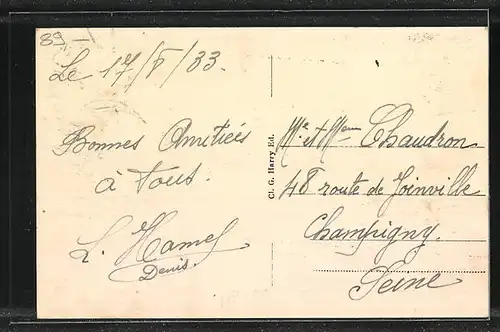 89
Le 17/8/33.
Bonnes Amitiés
à Tous.
L. Hamel
Denis.
Cl. G. Harry Ed.
Mr et Mme Chaudron
48 route de Joinville
Champigny.
Seine